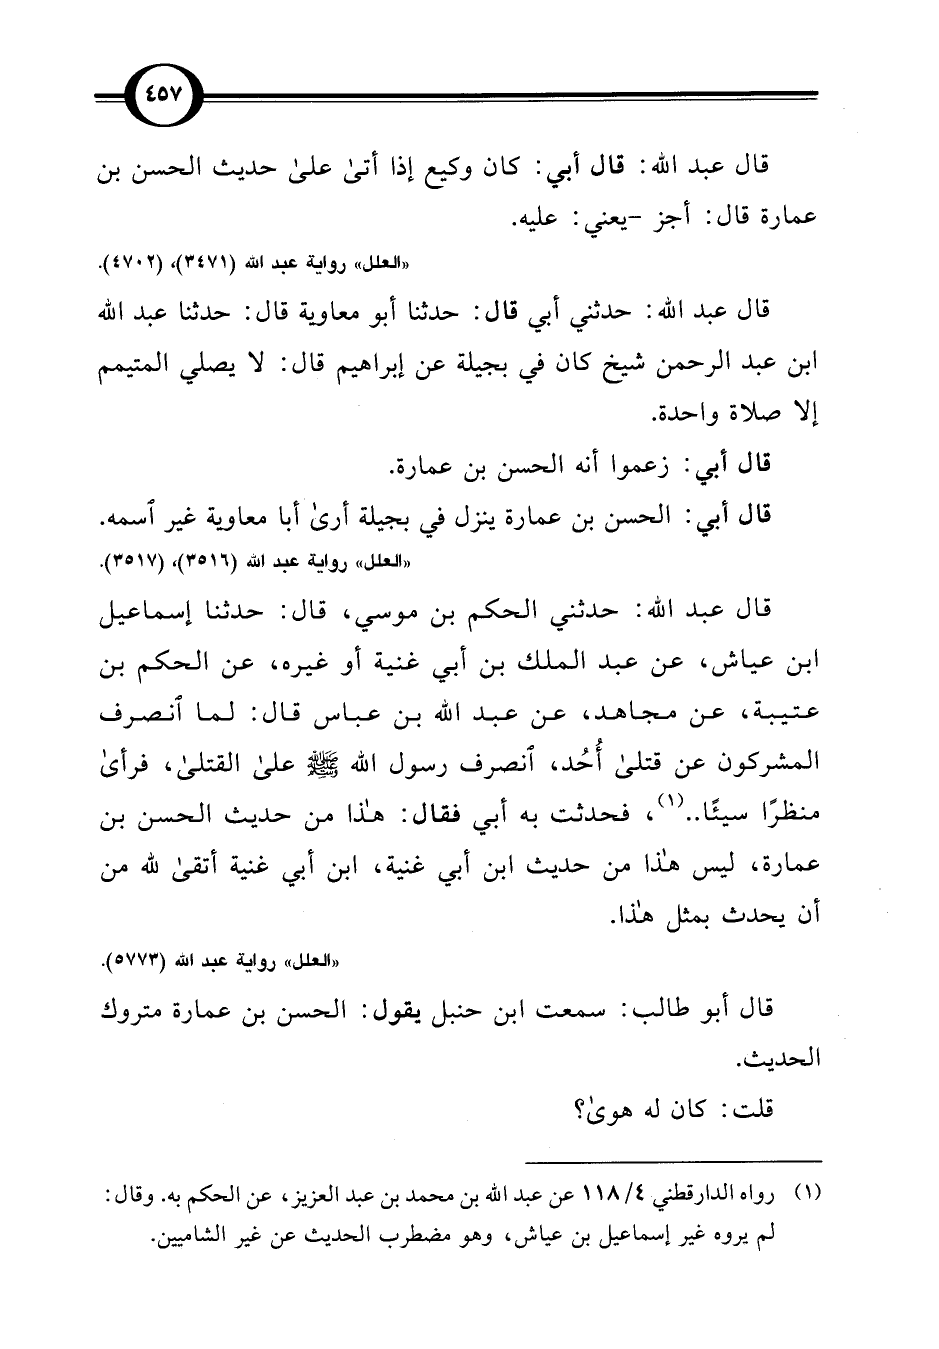 ٤٥٧
قال عبد الله: قال أبي: كان وكيع إذا أتىٰ علىٰ حديث الحسن بن
عمارة قال: أجز -يعني: عليه.
«العلل» رواية عبد الله (٣٤٧١)، (٤٧٠٢).
قال عبد الله: حدثني أبي قال: حدثنا أبو معاوية قال: حدثنا عبد الله
ابن عبد الرحمن شيخ كان في بجيلة عن إبراهيم قال: لا يصلي المتيمم
إلا صلاة واحدة.
قال أبي: زعموا أنه الحسن بن عمارة.
قال أبي: الحسن بن عمارة ينزل في بجيلة أرىٰ أبا معاوية غير ٱسمه.
«العلل» رواية عبد الله (٣٥١٦)، (٣٥١٧).
قال عبد الله: حدثني الحكم بن موسي، قال: حدثنا إسماعيل
ابن عياش، عن عبد الملك بن أبي غنية أو غيره، عن الحكم بن
عتيبة، عن مجاهد، عن عبد الله بن عباس قال: لما ٱنصرف
المشركون عن قتلىٰ أُحُد، ٱنصرف رسول الله ﷺ علىٰ القتلىٰ، فرأىٰ
منظرًا سيئًا..(١)، فحدثت به أبي فقال: هٰذا من حديث الحسن بن
عمارة، ليس هٰذا من حديث ابن أبي غنية، ابن أبي غنية أتقىٰ لله من
أن يحدث بمثل هٰذا.
«العلل» رواية عبد الله (٥٧٧٣).
قال أبو طالب: سمعت ابن حنبل يقول: الحسن بن عمارة متروك
الحديث.
قلت: كان له هوىٰ؟
(١) رواه الدارقطني ٤/ ١١٨ عن عبد الله بن محمد بن عبد العزيز، عن الحكم به. وقال:
لم يروه غير إسماعيل بن عياش، وهو مضطرب الحديث عن غير الشاميين.